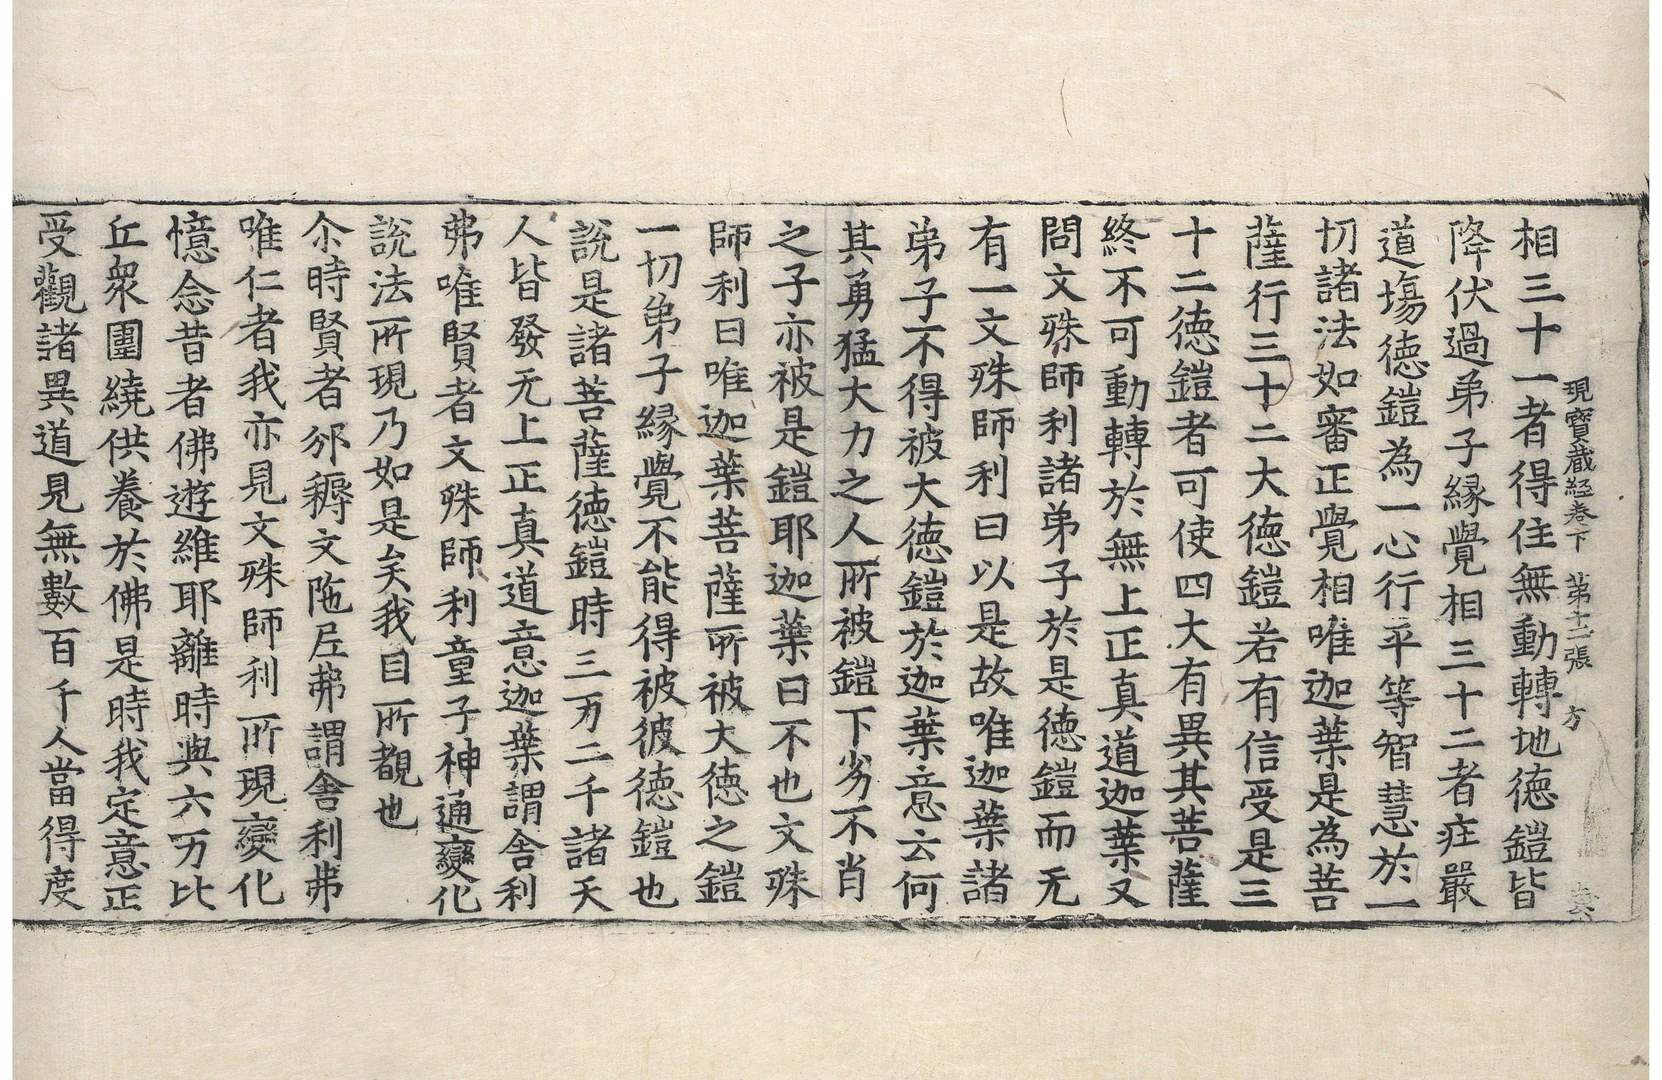 現寶蔵経卷下 第十二張 方
相三十一者得住無動轉地徳鎧皆
降伏過弟子緣覺相三十二者莊嚴
道塲徳鎧為一心行平等智慧於一
切諸法如審正覺相唯迦葉是為菩
薩行三十二大徳鎧若有信受是三
十二徳鎧者可使四大有異其菩薩
終不可動轉於無上正真道迦葉又
問文殊師利諸弟子於是徳鎧而无
有一文殊師利曰以是故唯迦葉諸
弟子不得被大徳鎧於迦葉意云何
其勇猛大力之人所被鎧下劣不肖
之子亦被是鎧耶迦葉曰不也文殊
師利曰唯迦葉菩薩所被大徳之鎧
一切弟子緣覺不能得被彼徳鎧也
說是諸菩薩徳鎧時三万二千諸天
人皆發无上正真道意迦葉謂舎利
弗唯賢者文殊師利童子神通變化
說法所現乃如是矣我目所覩也
尒時賢者邠耨文陁尼弗謂舎利弗
唯仁者我亦見文殊師利所現變化
憶念昔者佛遊維耶離時與六万比
丘衆圍繞供養於佛是時我定意正
受觀諸異道見無數百千人當得度